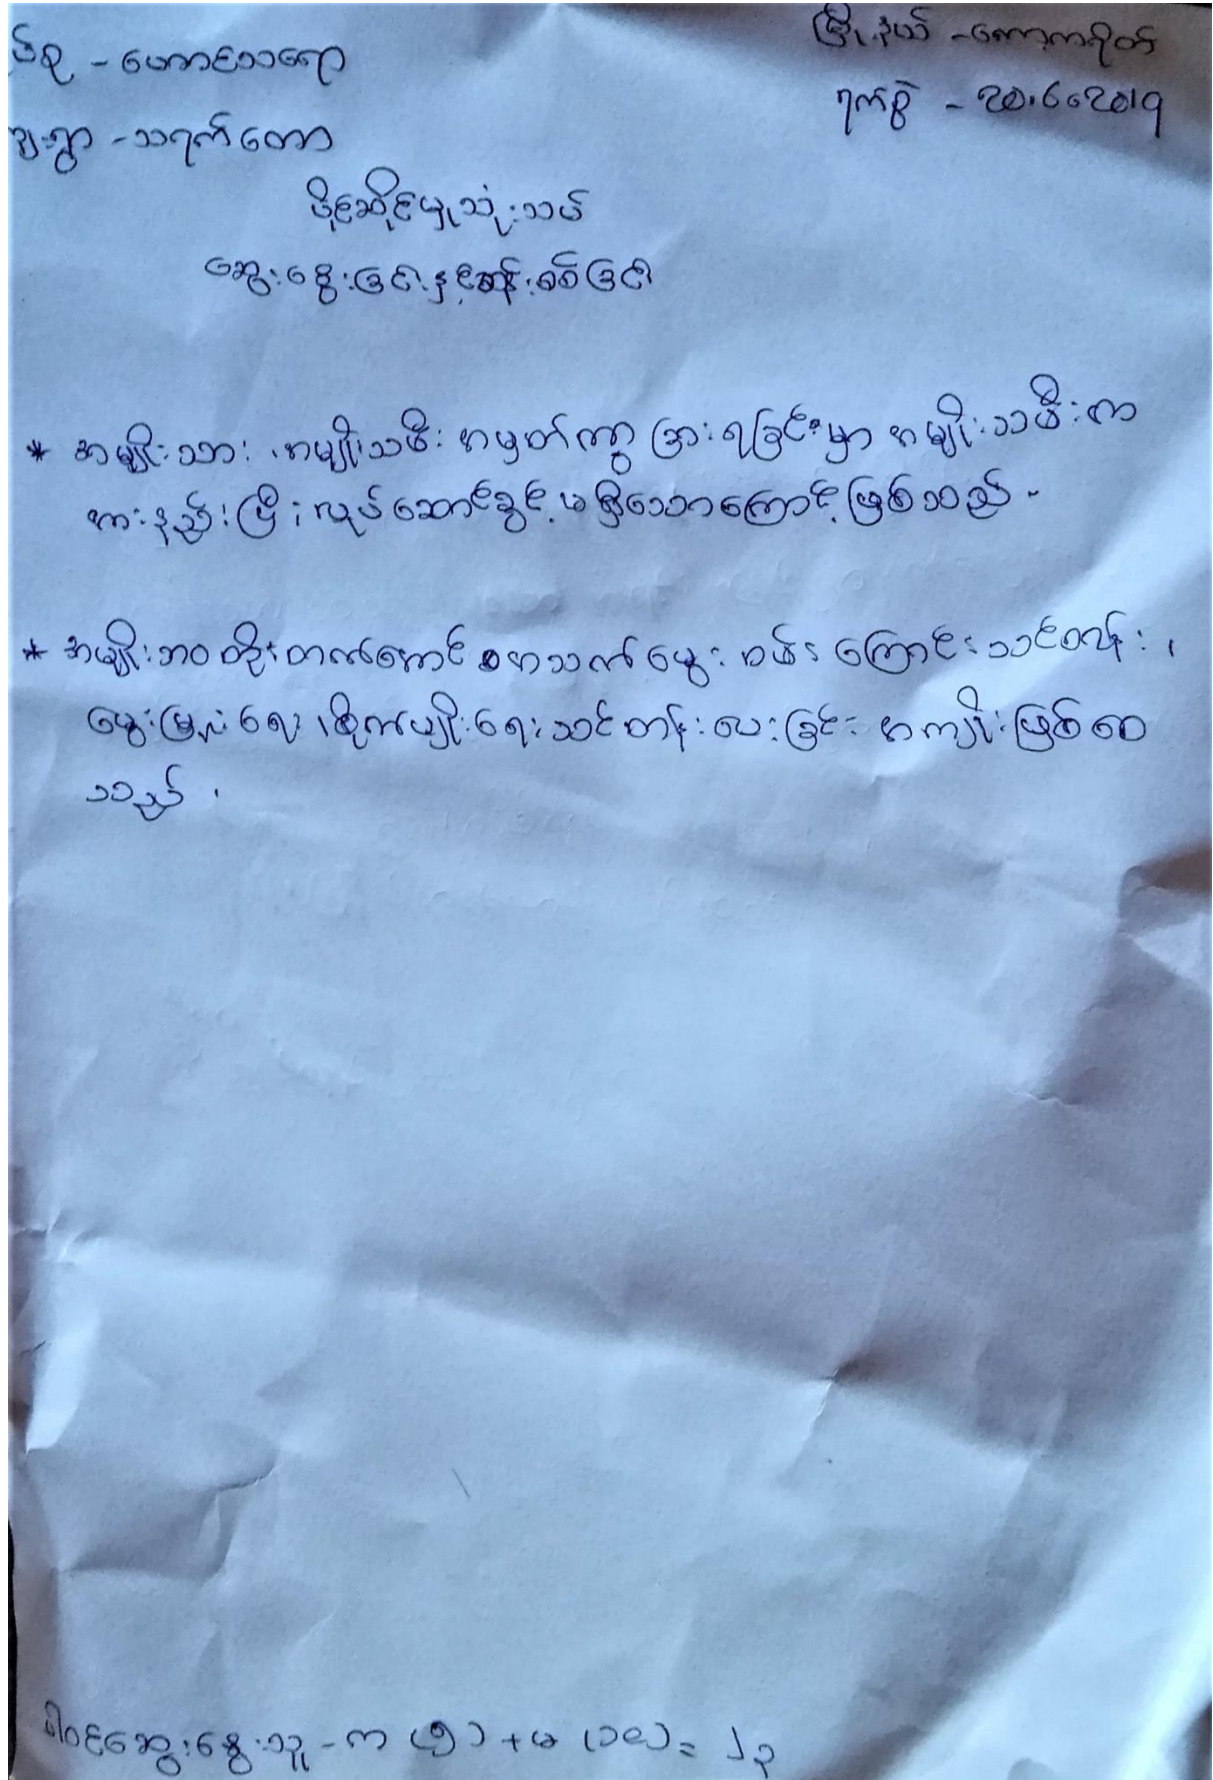 မြို့နယ် - ကော့ကရိတ်
အုပ်စု - ဟောင်သရော
ရက်စွဲ - 20.6.2019
ကျေးရွာ - သရက်တော
ပိုင်ဆိုင်မှုသုံးသပ်
ဆွေးနွေးခြင်းနှင့်ဆန်းစစ်ခြင်း
* အမျိုးသား ၊ အမျိုးသမီး အမှတ်ကွာခြားရခြင်းမှာ အမျိုးသမီးက
အားနည်းပြီး လုပ်ဆောင်ခွင့် မရှိသောကြောင့် ဖြစ်သည် -
* အမျိုးဘဝတိုးတက်အောင် အသက်မွေးဝမ်းကြောင်းသင်တန်း ၊
မွေးမြူရေး ၊ စိုက်ပျိုးရေးသင်တန်းပေးခြင်း အကျိုးဖြစ်စေ
သည် ၊
ပါဝင်ဆွေးနွေးသူ - က (၅) + မ (၁၈) = ၂၃